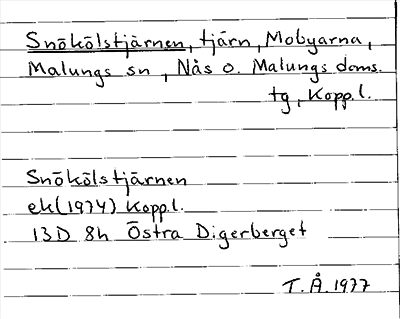 Snökölstjärnen, tjärn, Mobyarna,
Malungs sn, Nås o. Malungs doms.
tg, Kopp.l.
Snökölstjärnen
ek(1974) Kopp.l.
13D 8h Östra Digerberget
T.Å.1977